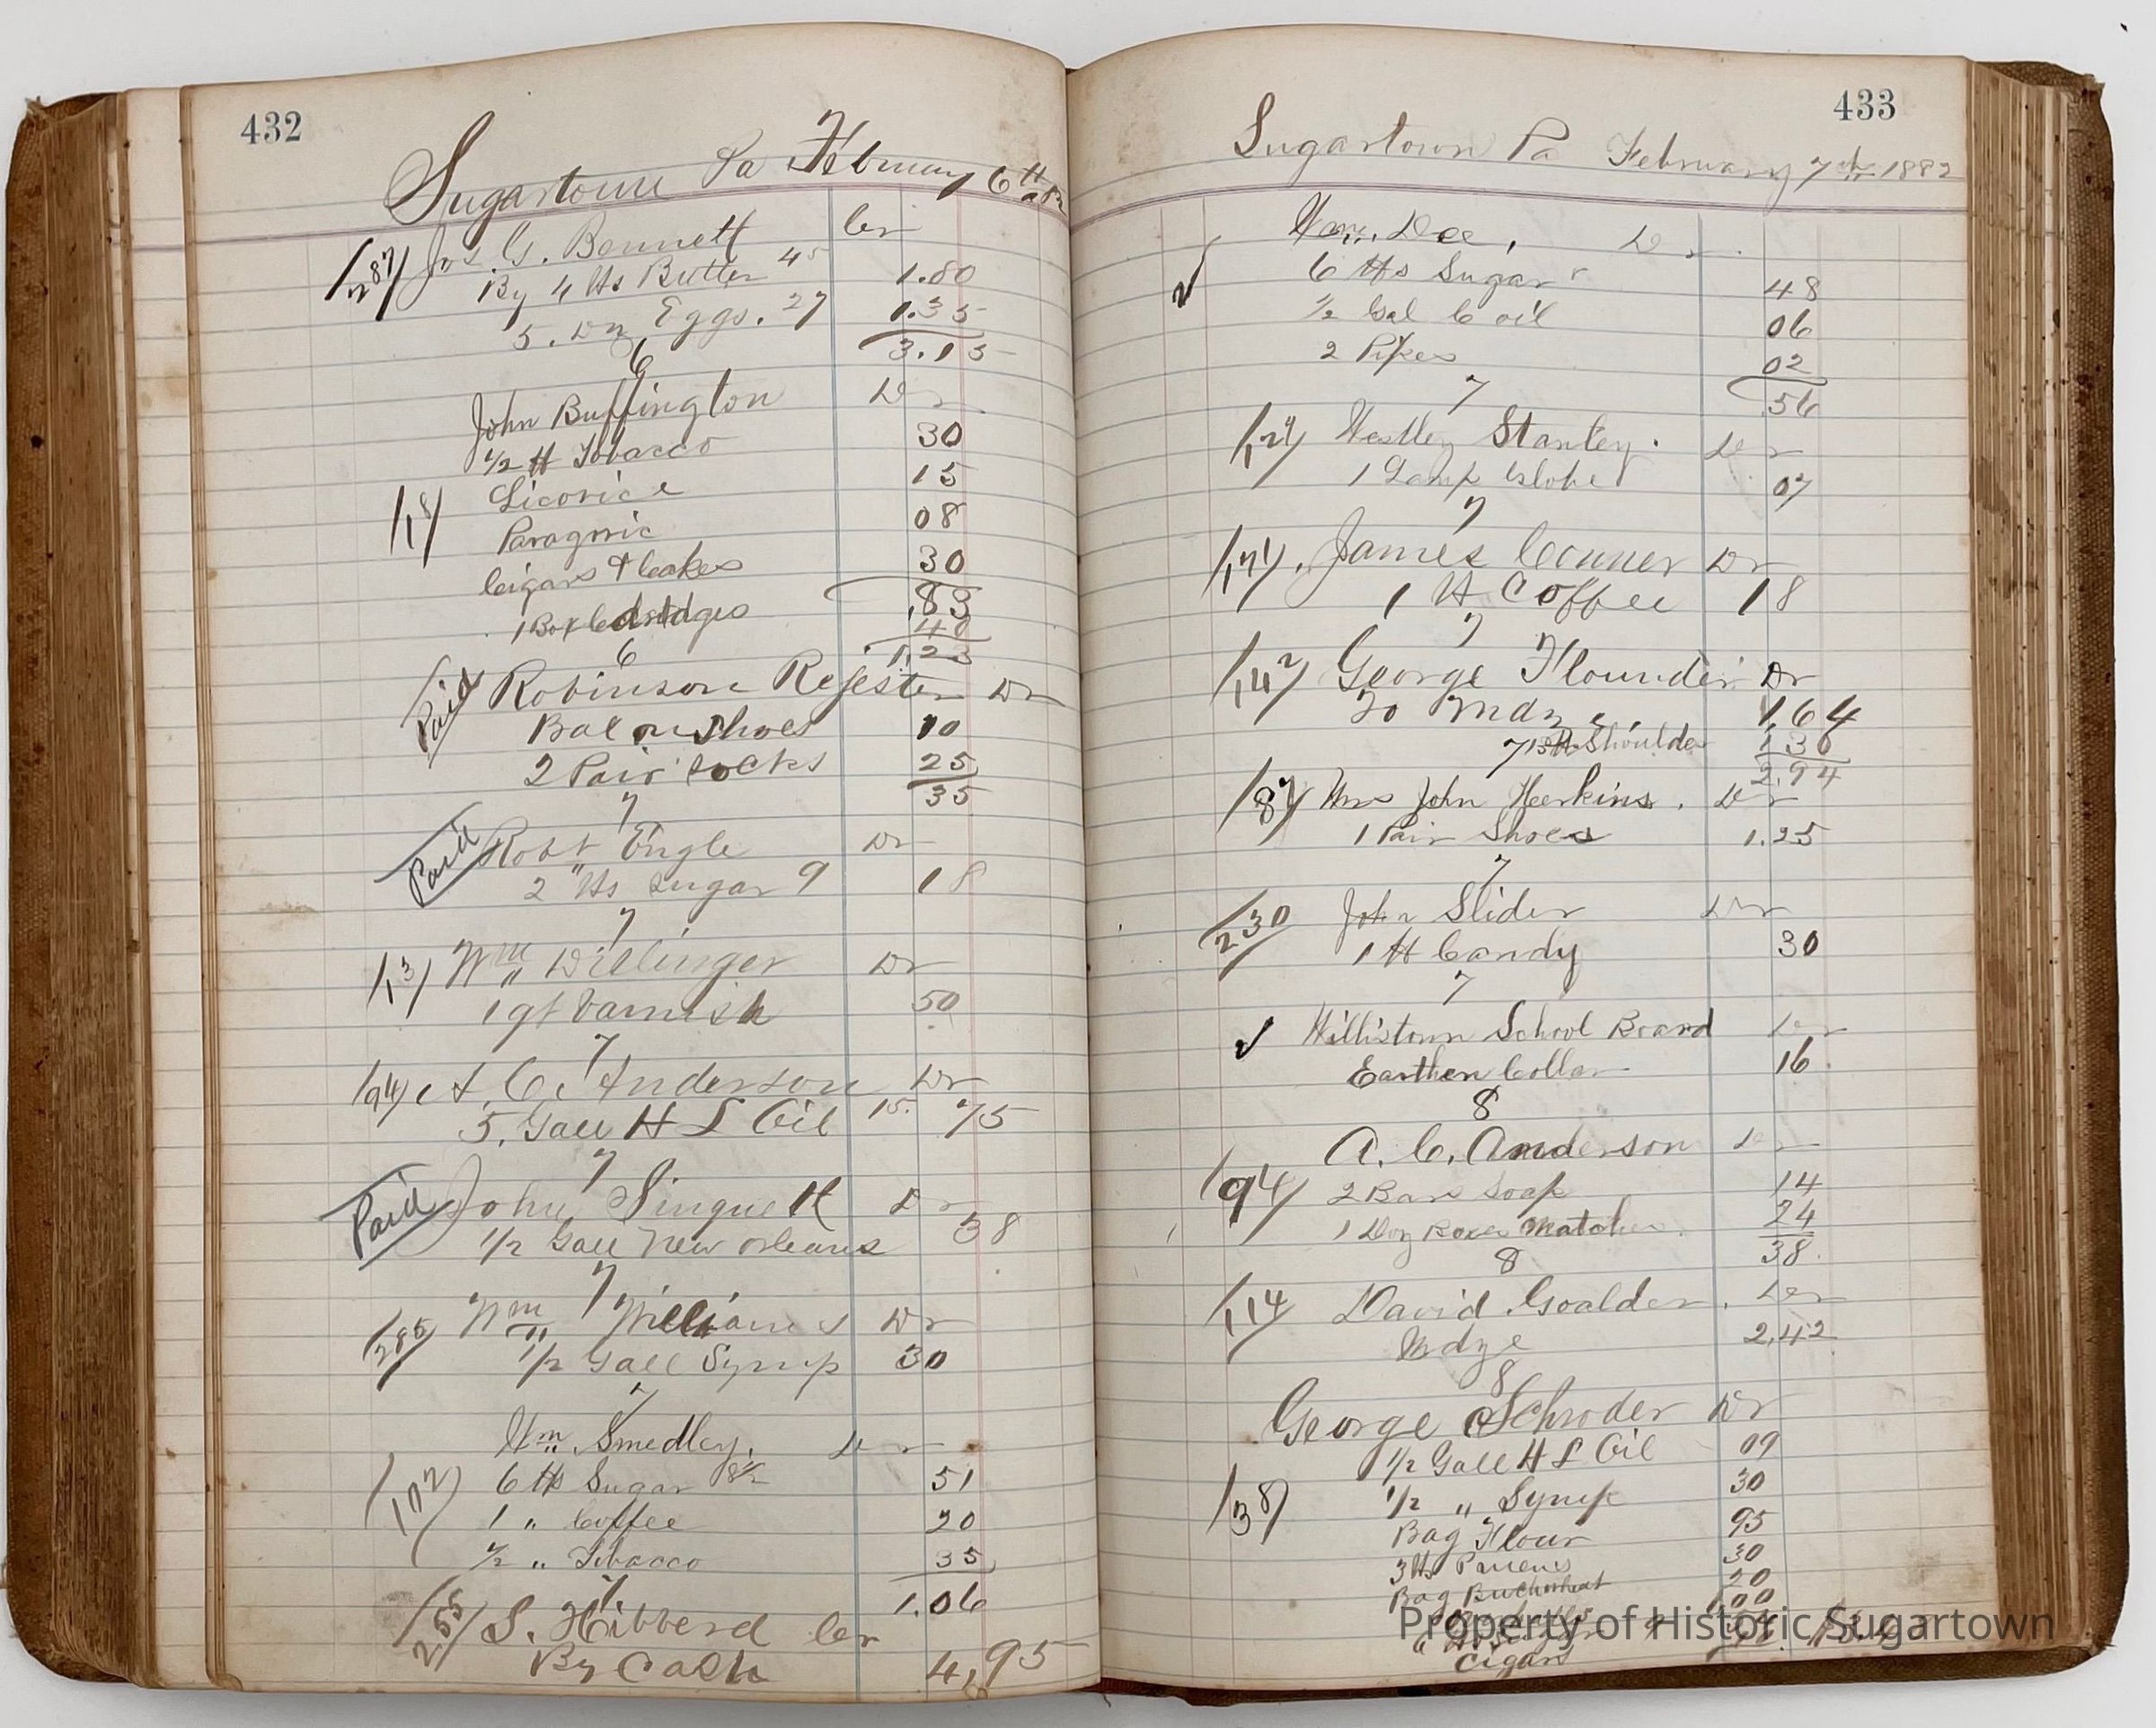 432
Sugartown Pa February 6th 82
287 Jos. G. Bennett Cr
By 4 lbs Butter 45 1.80
5. Dz Eggs. 27 1.35
3.15
6
John Buffington Dr
1/2 lb Tobacco 30
18 Licorice 15
Paragoric 08
Cigars & Cakes 30
.83
1 Box 40
1.23
6
Paid Robinson Rejester Dr
Bal on Shoes 10
2 Pair Socks 25
35
7
Paid Robt Engle Dr
2 lbs Sugar 9 18
7
13 Wm Dillinger Dr
1 qt Varnish 50
7
94 A. C. Anderson Dr
5. Gall H L Oil 15. 75
7
Paid John Dr
1/2 Gall New orleans 38
7
285 Wm Williams Dr
1/2 Gall Syrup 30
7
Wm Smedley. Dr
172 6 lb Sugar 8 1/2 51
1 " Coffee 20
1/2 " Tobacco 35
1.06
7
255 S. Hibberd Cr
By Cash 4,95
433
Sugartown Pa February 7th 1882
Wm. Dee, Dr
6 lbs Sugar 48
1/2 Gal C oil 06
2 Pipes 02
56
7
Westley Stanley. Dr
1 Lamp Globe 07
7
171. James Conner Dr
1 lb Coffee 18
7
142 George Flounder Dr
To Mdze. 1,64
Shoulder 1 30
2.94
187 Mrs John Heskins. Dr
1 Pair Shoes 1.25
7
230 John Slider Dr
1 lb Candy 30
7
Willistown School Board Dr
Earthen Collar 16
8
A. C. Anderson Dr
94 2 Bars Soap 14
1 Doz Boxes Matches 24
38
8
114 David Goalder. Dr
Mdze 2,42
8
George Schroder Dr
1/2 Gall H L Oil 09
38 1/2 " Syrup 30
Bag Flour 95
3 lbs 30
Bag Buckwheat 20
1,00
Cigars
Property of Historic Sugartown